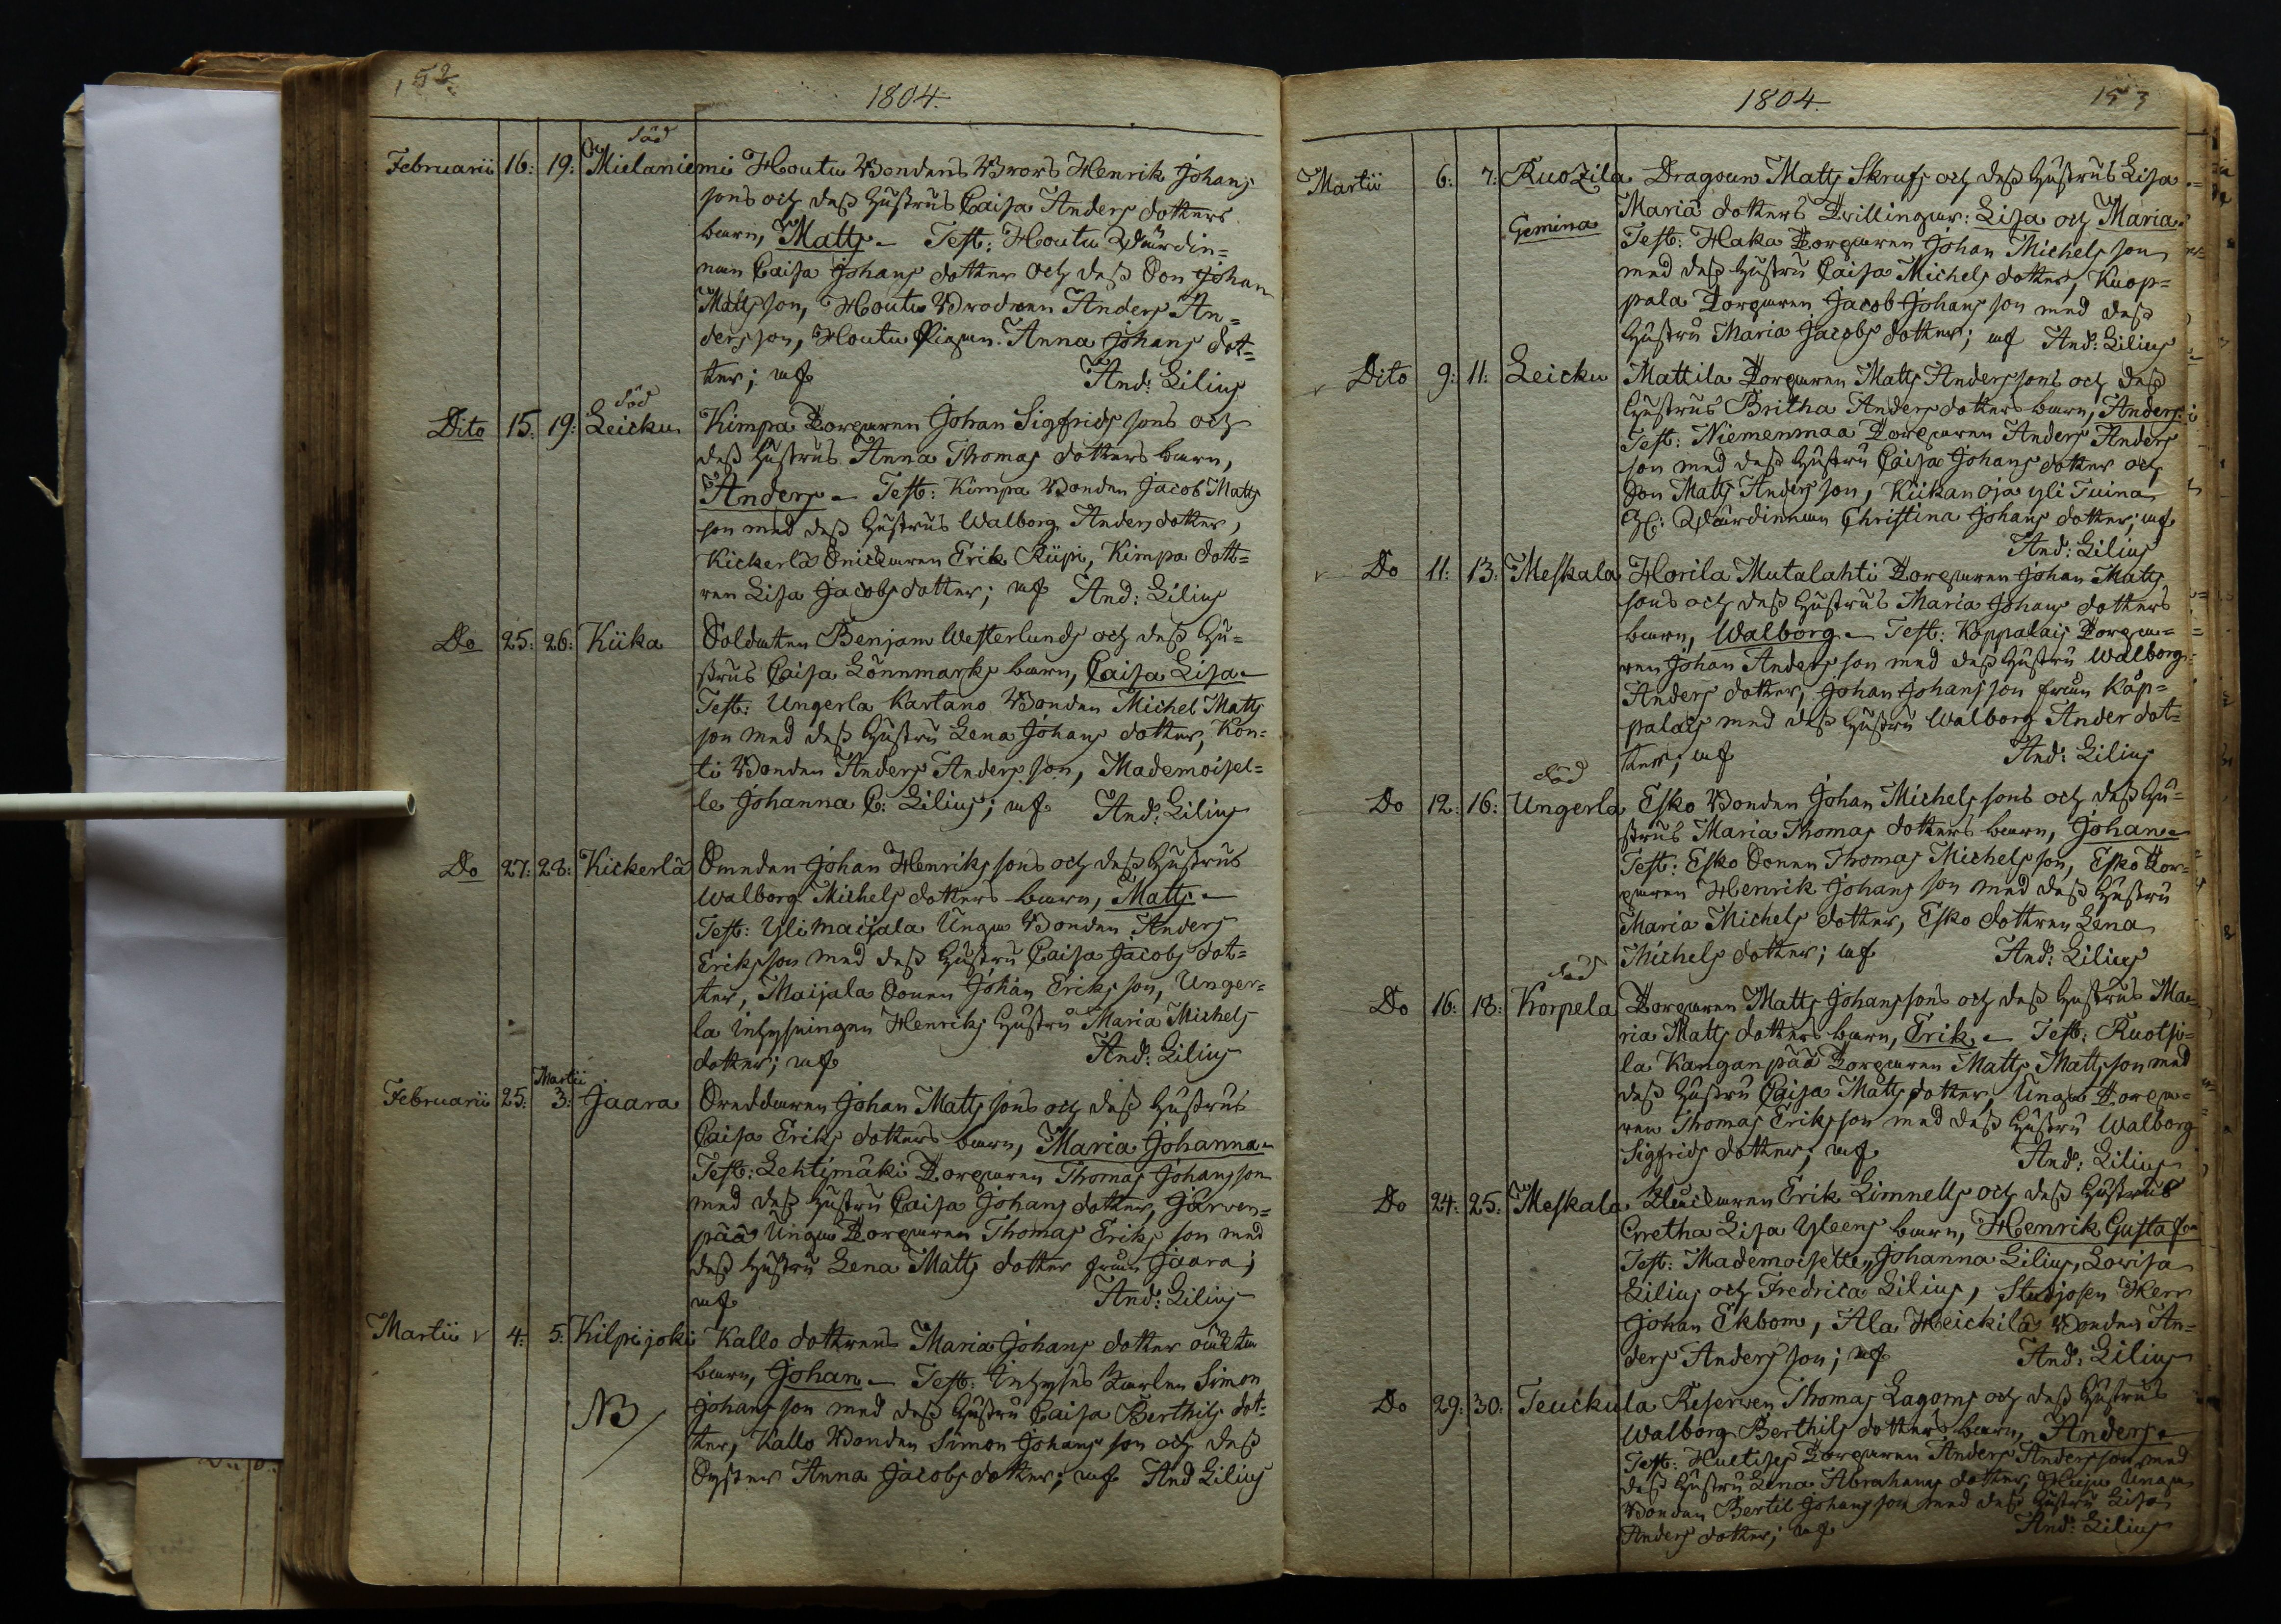 152.
1804.
död
Februarii 16: 19: Mielaniemi Houtu Bondens Brors Henrik Johans
sons och dess Hustrus Caisa Anders dotters
barn, Matts - Test: Houtu Wärdin=
nan Caisa Johans dotter och dess Son Johan
Matts son, Houtu Brodren Anders An=
ders son, Houtu Pigan Anna Johans dot=
ter; uf And: Lilius
död
Dito 15: 19: Leicku Kimpa Torparen Johan Sigfrids sons och
dess Hustrus Anna Thomas dotters barn,
Anders - Test: Kimpa Bonden Jacob Matts
son med dess Hustrus Walborg Anders dotter,
Kickerlä Snickaren Erik Riipi, Kimpa dott=
ren Lisa Jacobs dotter; uf And: Lilius
Do 25: 26: Kiika Soldaten Benjam Westerlunds och dess Hu=
strus Caisa Lönnmarks barn, Caisa Lisa -
Test: Ungerla Kartano Bonden Michel Matts
son med dess Hustru Lena Johans dotter, Kon=
ti Bonden Anders Anders son, Mademoisel=
le Johanna C: Lilius; uf And: Lilius
Do 27: 28: Kickerlä Smeden Johan Henriks sons och dess Hustrus
Walborg Michels dotters barn, Matts -
Test: Yli Maijala Unga Bonden Anders
Eriks son med dess Hustru Caisa Jacobs dot=
ter, Maijala Sonen Johan Eriks son, Unger=
la Inhysningen Henriks Hustru Maria Michels
dotter; uf And: Lilius
Martii
Februarii 25: 3: Jaara Skräddaren Johan Matts sons och dess Hustrus
Caisa Eriks dotters barn, Maria Johanna -
Test: Lehtimäki Torparen Thomas Johans son
med dess Hustru Caisa Johans dotter, Järwen=
pää Unga Torparen Thomas Eriks son med
dess Hustru Lena Matts dotter från Jaara;
uf And: Lilius
Martii 4: 5: Kilpijoki Kallo dottrens Maria Johans dotter oäkta
barn, Johan - Test: Inhyses Karlen Simon
NB Johans son med dess Hustru Caisa Berthils dot=
ter, Kallo Bonden Simon Johans son och dess
Syster Anna Jacobs dotter; uf And Lilius
1804. 153
Martii 6: 7: Ruozila Dragoun Matts Skrufs och dess Hustrus Lisa
Maria dotters Twillingar: Lisa och Maria.
Gemina Test: Haka Torparen Johan Michels son
med dess Hustru Caisa Michels dotter, Knop=
pala Torparen Jacob Johans son med dess
Hustru Maria Jacobs dotter; uf And: Lilius
Dito 9: 11: Leicku Mattila Torparen Matts Anders sons och dess
Hustrus Britha Anders dotters barn, Anders.
Test: Niemenmaa Torparen Anders Anders
son med dess Hustru Caisa Johans dotter och
Son Matts Anders son, Kiikanoja yli Tuina
Wärdinnan Christina Johans dotter; uf
And: Lilius
Do 11: 13: Meskala Horila Mutalahti Torparen Johan Matts
sons och dess Hustrus Maria Johans dotters
barn, Walborg - Test: Koppalais Torpa=
ren Johan Anders son med dess Hustru Walborg
Anders dotter, Johan Johans son från Kop=
palais med dess Hustru Walborg Ander dot=
ter; uf And: Lilius
död
Do 12: 16: Ungerla Esko Bonden Johan Michels sons och dess Hu=
strus Maria Thomas dotters barn, Johan -
Test: Esko Sonen Thomas Michels son, Esko Tor=
paren Henrik Johans son med dess Hustru
Maria Michels dotter, Esko dottren Lena
Michels dotter; uf And: Lilius
död
Do 16: 18: Korpela Torparen Matts Johans sons och dess Hustrus Ma=
ria Matts dotters barn, Erik - Test: Ruotsi=
la Kanganpää Torparen Matts Matts son med
dess Hustru Caisa Matts dotter, Unga Torpa=
ren Thomas Eriks son med dess Hustru Walborg
Sigfrids dotter; uf And: Lilius
Do 24: 25: Meskala Erik Limnells och dess Hustrus
Gretha Lisa Yleens barn, Henrik Gustaf -
Test: Mademoiselle, Johanna Lilius, Lowisa
Lilius och Fredrica Lilius, Studjosen Herr
Johan Ekbom, Ala Heickilä Bonden An=
ders Anders son; uf And: Lilius
Do 29: 30: Teuckula Reserwen Thomas Lagoms och dess Hustrus
Walborg Berthils dotters barn, Anders -
Test: Huitis Torparen Anders Anders son med
dess Hustru Lena Abrahams dotter, Unga
Bonden Bertil Johans son med dess Hustru Lisa
Anders dotter; uf And: Lilius